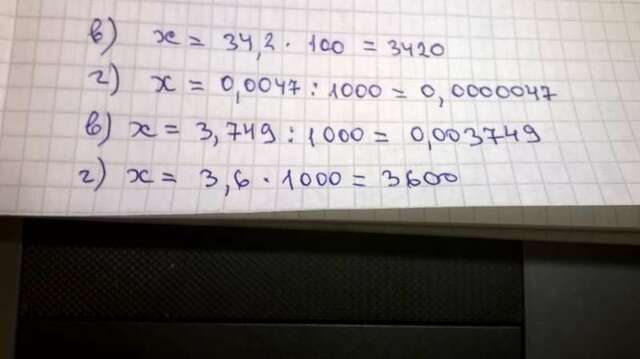 в) x = 34,2 · 100 = 3420
г) x = 0,0047 : 1000 = 0,0000047
в) x = 3,749 : 1000 = 0,003749
г) x = 3,6 · 1000 = 3600